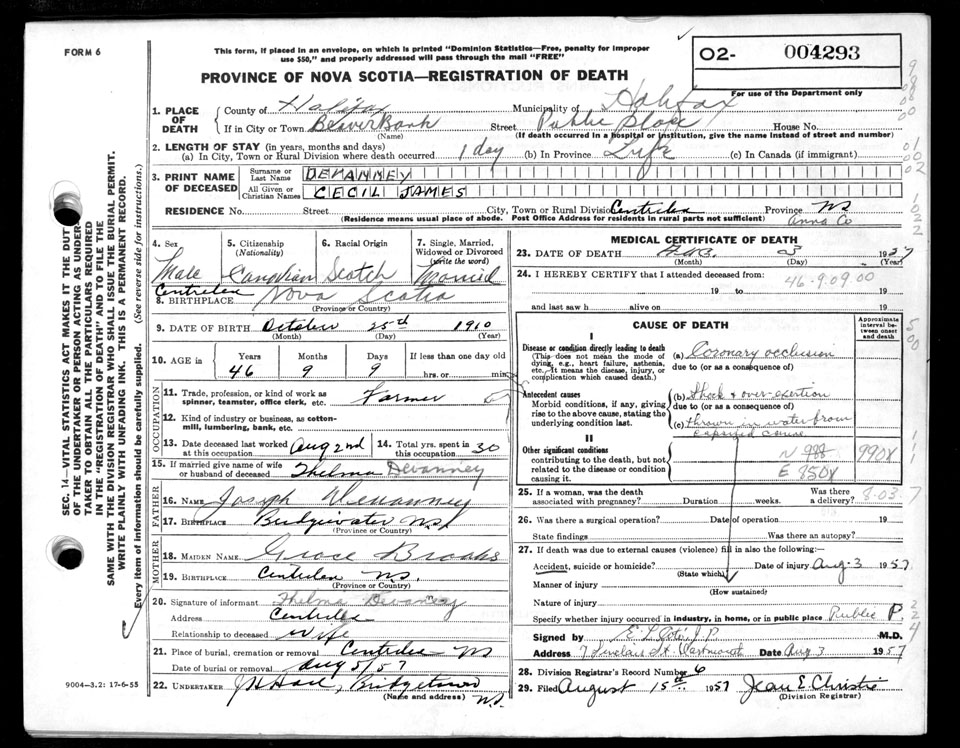 FORM 6
This form, if placed in an envelope, on which is printed "Dominion Statistics—Free, penalty for improper
use $50," and properly addressed will pass through the mail "FREE"
O2- 004293
PROVINCE OF NOVA SCOTIA—REGISTRATION OF DEATH
For use of the Department only
1. PLACE OF DEATH
County of Halifax Municipality of Halifax
If in City or Town Beaver Bank Street Public Place House No.
(Name) (If death occurred in a hospital or institution, give the name instead of street and number)
2. LENGTH OF STAY (in years, months and days)
(a) In City, Town or Rural Division where death occurred 1 day (b) In Province Life (c) In Canada (if immigrant)
3. PRINT NAME OF DECEASED
Surname or Last Name DEVANNEY
All Given or Christian Names CECIL JAMES
RESIDENCE No. Street City, Town or Rural Division Centrelea Province NS
(Residence means usual place of abode. Post Office Address for residents in rural parts not sufficient) Anna Co
4. Sex Male
5. Citizenship (Nationality) Canadian
6. Racial Origin Scotch
7. Single, Married, Widowed or Divorced (write the word) Married
8. BIRTHPLACE Centrelea Nova Scotia
(Province or Country)
9. DATE OF BIRTH October 25th 1910
(Month) (Day) (Year)
10. AGE in Years Months Days If less than one day old
46 9 9 hrs. or min.
OCCUPATION
11. Trade, profession, or kind of work as spinner, teamster, office clerk, etc. Farmer
12. Kind of industry or business, as cotton-mill, lumbering, bank, etc.
13. Date deceased last worked at this occupation Aug 2nd 14. Total yrs. spent in this occupation 30
15. If married give name of wife or husband of deceased Thelma Devanney
FATHER
16. NAME Joseph Devanney
17. BIRTHPLACE Bridgewater NS
(Province or Country)
MOTHER
18. MAIDEN NAME Grace Brooks
19. BIRTHPLACE Centrelea NS.
(Province or Country)
20. Signature of informant Thelma Devanney
Address Centrelea
Relationship to deceased Wife
21. Place of burial, cremation or removal Centrelea NS
Date of burial or removal Aug 5/57
22. UNDERTAKER Bridgetown NS.
(Name and address)
MEDICAL CERTIFICATE OF DEATH
23. DATE OF DEATH 3 1957
(Month) (Day) (Year)
24. I HEREBY CERTIFY that I attended deceased from:
46-9-09 00
19 to 19
and last saw h alive on 19
CAUSE OF DEATH
Approximate interval between onset and death
I
Disease or condition directly leading to death
(This does not mean the mode of dying, e.g., heart failure, asthenia, etc. It means the disease, injury, or complication which caused death.)
(a) Coronary occlusion
due to (or as a consequence of)
Antecedent causes
Morbid conditions, if any, giving rise to the above cause, stating the underlying condition last.
(b) Shock & over-exertion
due to (or as a consequence of)
(c) thrown in water from capsized canoe
II
Other significant conditions
contributing to the death, but not related to the disease or condition causing it.
N 990X
E 850X
25. If a woman, was the death associated with pregnancy? Duration weeks. Was there a delivery? 8-03
26. Was there a surgical operation? Date of operation 19
State findings Was there an autopsy?
27. If death was due to external causes (violence) fill in also the following:
Accident, suicide or homicide? Date of injury Aug 3 1957
(State which)
Manner of injury
(How sustained)
Nature of injury
Specify whether injury occurred in industry, in home, or in public place Public P.
Signed by J.P. M.D.
Address 7 Sinclair St Dartmouth Date Aug 3 1957
28. Division Registrar's Record Number 6
29. Filed August 15th 1957 Jean E. Christie
(Division Registrar)
SEC. 14—VITAL STATISTICS ACT MAKES IT THE DUTY
OF THE UNDERTAKER OR PERSON ACTING AS UNDER-
TAKER TO OBTAIN ALL THE PARTICULARS REQUIRED
IN THE "REGISTRATION OF DEATH" AND TO FILE THE
SAME WITH THE DIVISION REGISTRAR WHO SHALL ISSUE THE BURIAL PERMIT.
WRITE PLAINLY WITH UNFADING INK. THIS IS A PERMANENT RECORD.
Every item of information should be carefully supplied. (See reverse side for instructions.)
9004-3.2: 17-6-55